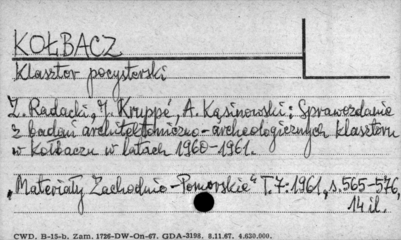 KOŁBACZ
Klasztor pocysterski
Z. Radacki, J. Kruppé, A. Kąsinowski: Sprawozdanie
z badań architektoniczno-archeologicznych klasztoru
w Kołbaczu w latach 1960-1961.
„Materiały Zachodnio-Pomorskie" T.7:1961, s.565-576,
14 il.
CWD. B-15-b. Zam. 1726-DW-On-67. GDA-3198. 8.11.67. 4.620.000.